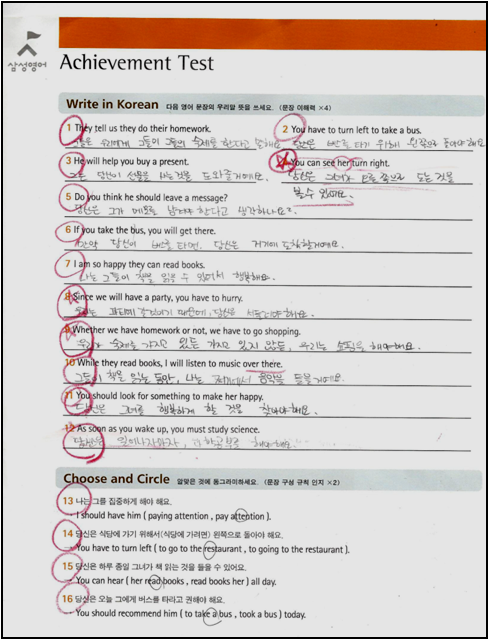 삼성영어
Achievement Test
Write in Korean 다음 영어 문장의 우리말 뜻을 쓰세요. (문장 이해력 ×4)
1 They tell us they do their homework.
그들은 우리에게 그들이 그들의 숙제를 한다고 말해요.
2 You have to turn left to take a bus.
당신은 버스를 타기 위해 왼쪽으로 돌아야 해요.
3 He will help you buy a present.
그는 당신이 선물을 사는것을 도와줄거에요.
4 You can see her turn right.
당신은 그녀가 오른쪽으로 도는 것을
볼 수 있어요.
5 Do you think he should leave a message?
당신은 그가 메모를 남겨야 한다고 생각하나요?
6 If you take the bus, you will get there.
만약 당신이 버스를 타면, 당신은 거기에 도착할거에요.
7 I am so happy they can read books.
나는 그들이 책을 읽을 수 있어서 행복해요.
8 Since we will have a party, you have to hurry.
우리는 파티에 때문에, 당신은 서둘러야해요.
9 Whether we have homework or not, we have to go shopping.
우리가 숙제를 가지고 있든 가지고 있지 않든, 우리는 쇼핑을 해야해요.
10 While they read books, I will listen to music over there.
그들이 책을 읽는 동안, 나는 저기에서 음악을 들을거에요.
11 You should look for something to make her happy.
당신은 그녀를 행복하게 할 것을 찾아야해요.
12 As soon as you wake up, you must study science.
당신은 일어나자마자, 과학공부를 해야해요.
Choose and Circle 알맞은 것에 동그라미하세요. (문장 구성 규칙 인지 ×2)
13 나는 그를 집중하게 해야 해요.
I should have him ( paying attention , pay attention ).
14 당신은 식당에 가기 위해서(식당에 가려면) 왼쪽으로 돌아야 해요.
You have to turn left ( to go to the restaurant , to going to the restaurant ).
15 당신은 하루 종일 그녀가 책 읽는 것을 들을 수 있어요.
You can hear ( her read books , read books her ) all day.
16 당신은 오늘 그에게 버스를 타라고 권해야 해요.
You should recommend him ( to take a bus , took a bus ) today.